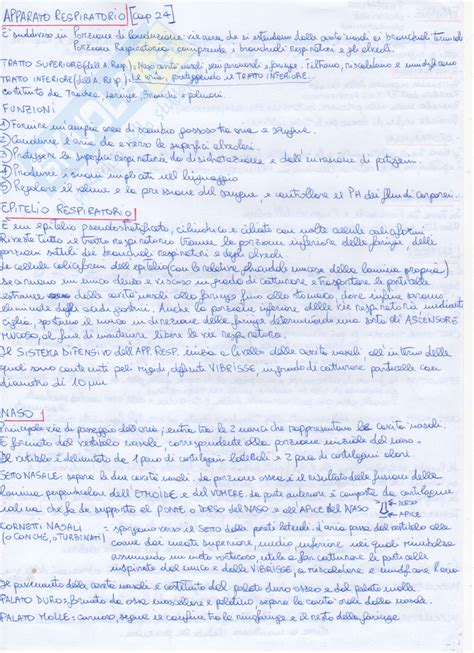 APPARATO RESPIRATORIO [cap 24]
E' suddiviso in Porzione di Conduzione: vie aeree che si estendono dalle cavità nasali ai bronchioli terminali
Porzione Respiratoria: comprende i bronchioli respiratori e gli alveoli.
TRATTO SUPERIORE (dell'A. Resp.) = Naso, cavità nasali, seni paranasali e faringe. Filtrano, riscaldano e umidificano
TRATTO INFERIORE (dell'A. Resp.) l'aria, proteggendo il TRATTO INFERIORE.
costituito da Trachea, Laringe, Bronchi e polmoni.
FUNZIONI
① Fornire un'ampia area di scambio gassoso tra aria e sangue.
② Condurre l'aria da e verso le superfici alveolari.
③ Proteggere la superficie respiratoria da disidratazione e dall'invasione di patogeni.
④ Produrre i suoni implicati nel linguaggio
⑤ Regolare il volume e la pressione del sangue, e controllare il PH dei fluidi corporei.
EPITELIO RESPIRATORIO
È un epitelio pseudostratificato, cilindrico e ciliato con molte cellule caliciformi
Riveste tutto il tratto respiratorio tranne la porzione inferiore della faringe, delle
porzioni sottili dei bronchioli respiratori e degli alveoli.
Le cellule caliciformi dell'epitelio (con le relative ghiandole mucose della lamina propria)
secernono un muco denso e viscoso in grado di catturare e trasportare le particelle
estranee dalle cavità nasali alla faringe fino allo stomaco, dove infine saranno
eliminate dagli acidi gastrici. Anche la porzione inferiore delle vie respiratorie mediante
ciglia, spostano il muco in direzione della faringe determinando una sorta di ASCENSORE
MUCOSO, al fine di mantenere libere le vie respiratorie.
Il SISTEMA DIFENSIVO dell'APP. RESP. inizia a livello delle cavità nasali all'interno delle
quali sono contenuti peli rigidi definiti VIBRISSE, in grado di catturare particelle con
diametro di 10 µm
NASO
Principale via di passaggio dell'aria; entra tra le 2 narici che rappresentano le cavità nasali.
È formato dal vestibolo nasale, corrispondente alla porzione iniziale del naso.
Il vestibolo è delimitato da 1 paio di cartilagini laterali e 2 paia di cartilagini alari.
SETTO NASALE: separa le due cavità nasali. La porzione ossea è il risultato della fusione della
lamina perpendicolare dell'ETMOIDE e del VOMERE. La parte anteriore è composta da cartilagine
ialina che fa da supporto al PONTE o DORSO del NASO e all'APICE del NASO
DORSO
APICE
CORNETTI NASALI
(O CONCHE, o TURBINATI)
= sporgono verso il SETTO dalle pareti laterali. L'aria passa dal vestibolo alle
coane dai meati superiore, medio, inferiore nei quali rimbalza
assumendo un moto vorticoso, utile a far catturare le particelle
inspirate dal muco e dalle VIBRISSE, a riscaldare e umidificare l'aria
Il pavimento delle cavità nasali è costituito dal palato duro osseo e dal palato molle.
PALATO DURO: formato da osso mascellare e palatino, separa le cavità orali dalle nasali.
PALATO MOLLE: carnoso, segna il confine tra la rinofaringe e il resto della faringe.